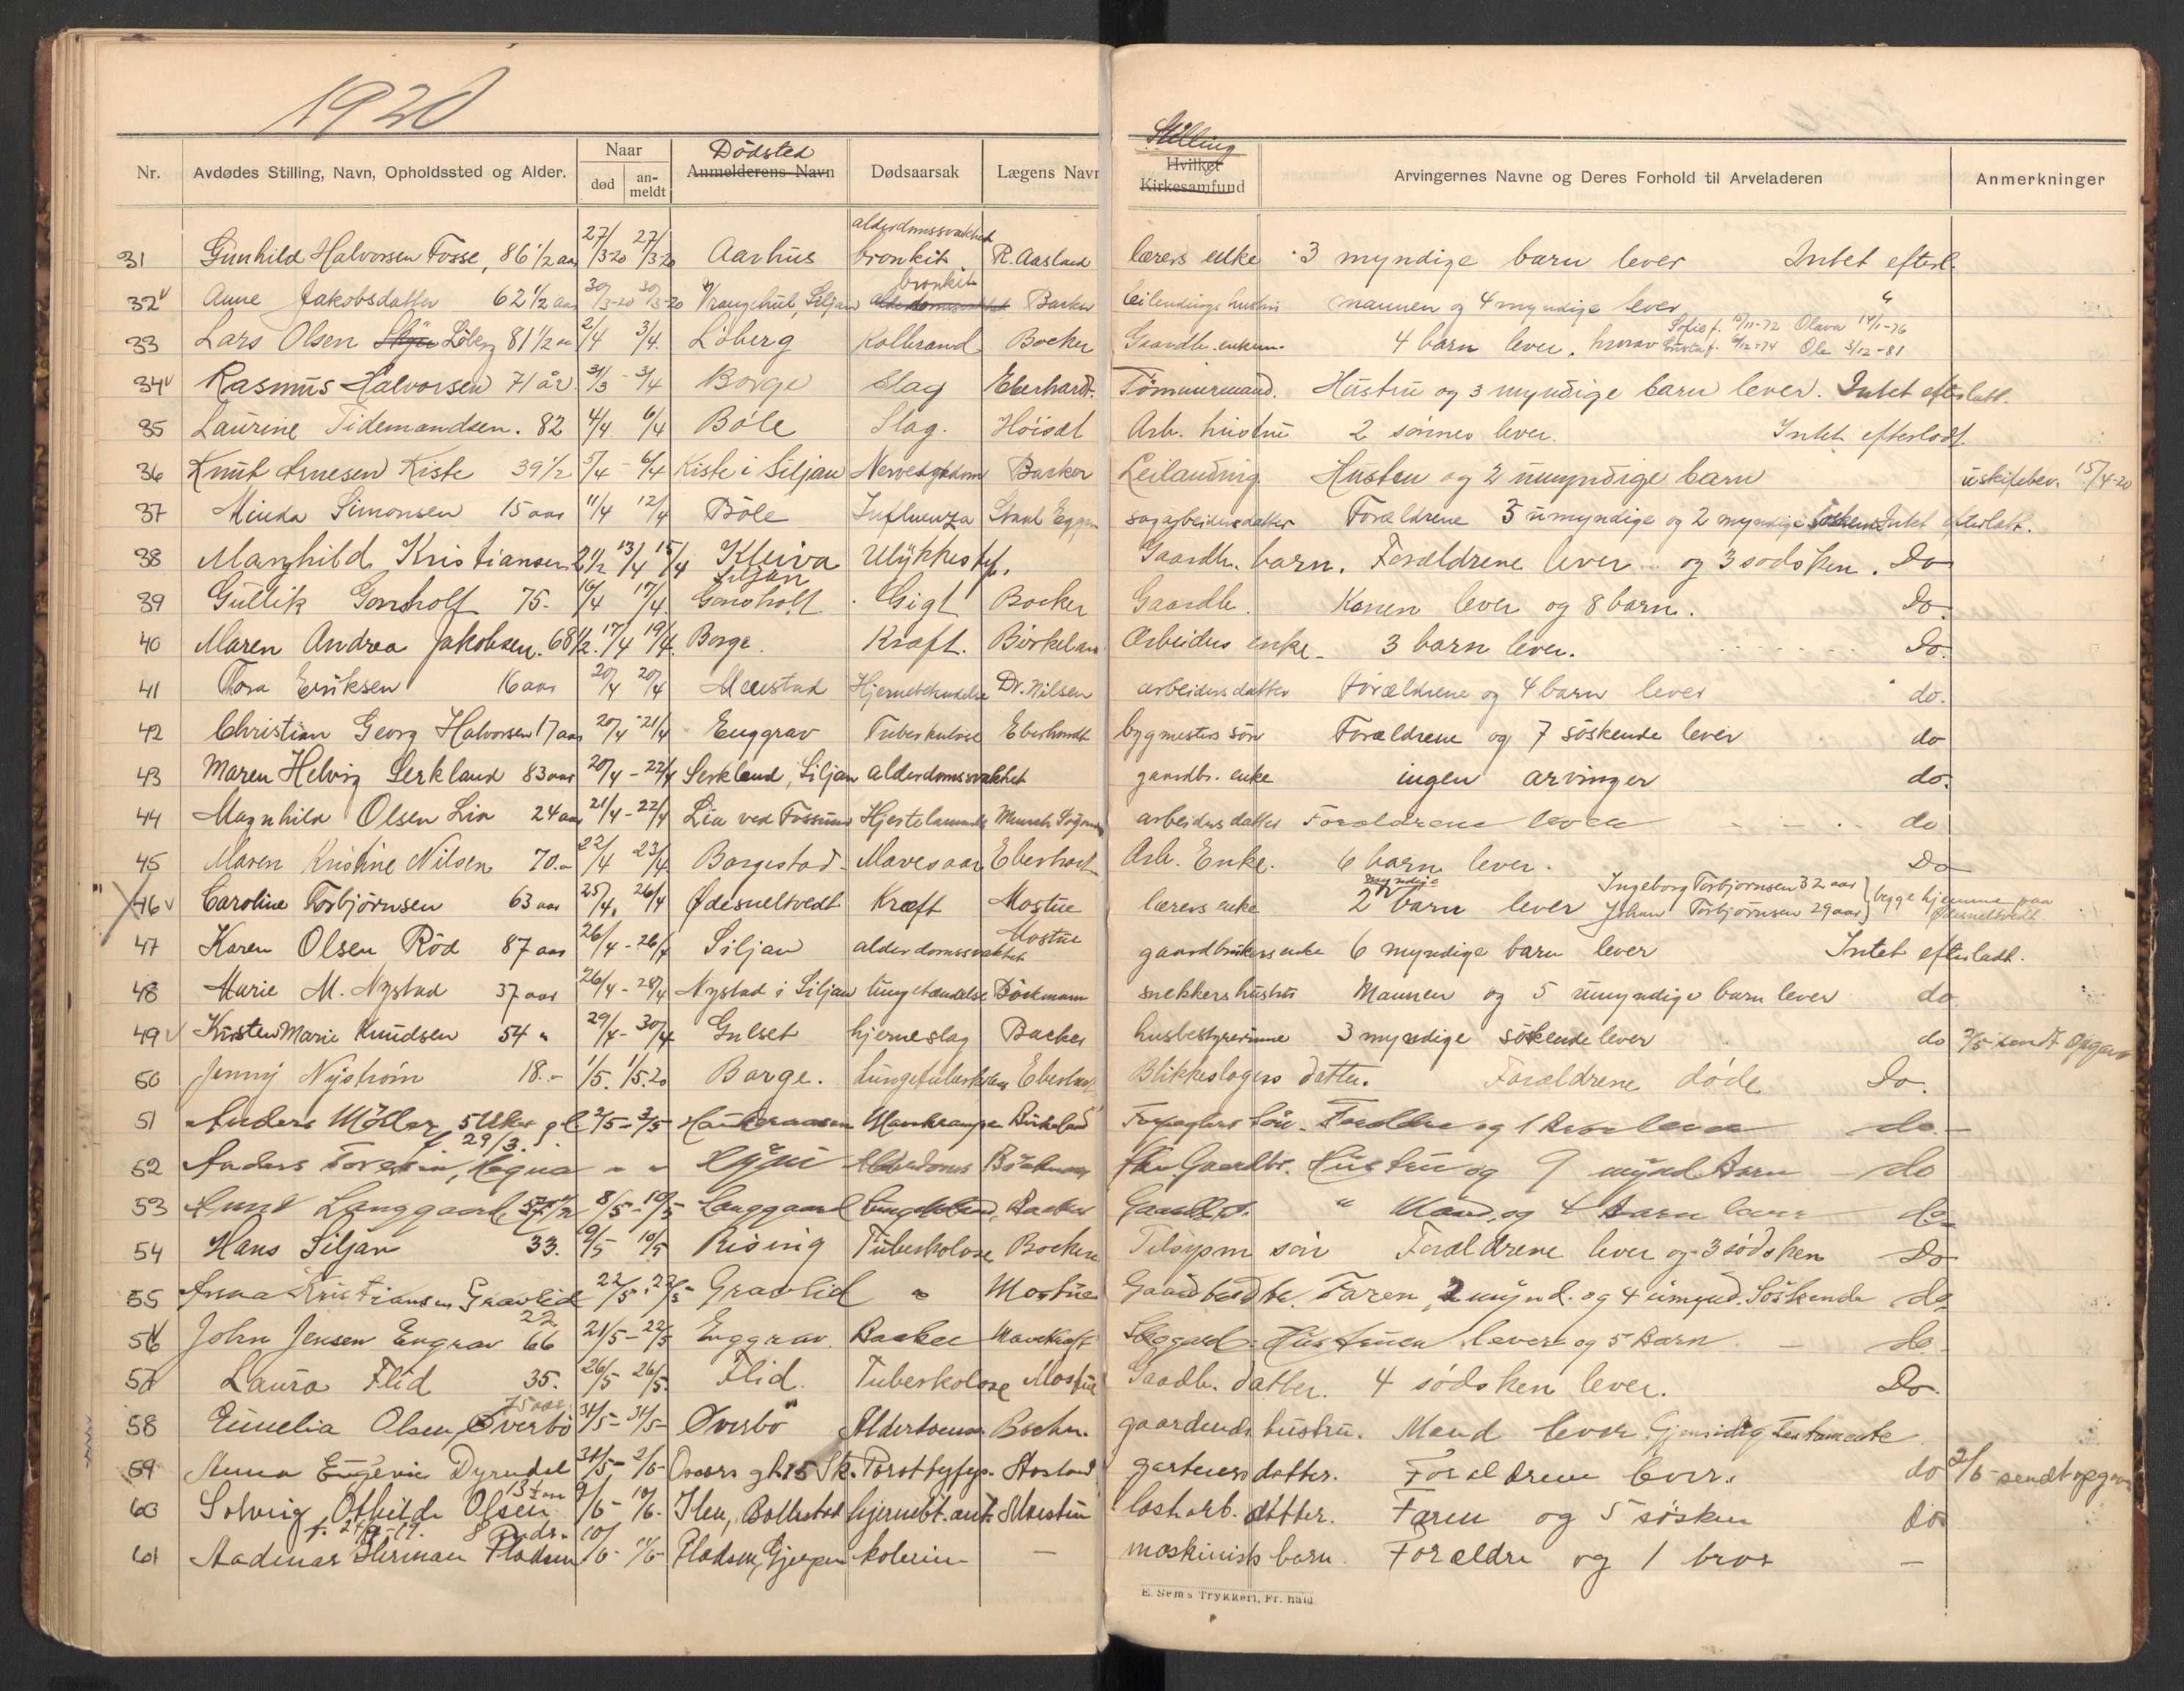 1920
Nr. Avdødes Stilling, Navn, Opholdssted og Alder. Naar død an-meldt Dödsted Anmelderens Navn Dødsaarsak Lægens Navn Stilling Hvilket Kirkesamfund Arvingernes Navne og Deres Forhold til Arveladeren Anmerkninger
31 Gunhild Halvorsen Fosse, 86 1/2 aar 27/3-20 27/3-20 Aarhus alderdomssvakhet bronkit R. Aasland lærers enke 3 myndige barn lever Intet efterl.
32 Anne Jakobsdatter 62 1/2 aar 30/3-20 30/3-20 Vrangehut, Siljan bronkit alderdomssvakhet Backer leilendings hustru mannen og 4 myndige lever "
33 Lars Olsen Löberg 81 1/2 2/4 3/4 Löberg Kolbrand Bocker Gaardb. enkem. 4 barn lever, hvorav Sofie f. 15/11-72 Olava 14/1-76 Gustaf 6/12-74 Ole 3/12-81
34 Rasmus Halvorsen 71 år 31/3 - 3/4 Borge Slag Eberhardt. Tömmermand. Hustru og 3 myndige barn lever. Intet efterlatt.
35 Laurine Tidemandsen. 82 4/4 6/4 Böle Slag. Höidal Arb. hustru 2 sönner lever. Intet efterladt.
36 Knut Arnesen Kiste 39 1/2 5/4 - 6/4 Kiste i Siljan Nervesygdom Backer Leilænding Hustru og 2 umyndige barn uskiftebev. 15/4-20
37 Minda Simonsen 15 aar 11/4 12/4 Böle Influenza sagarbeidersdatter Forældrene 5 umyndige og 2 myndige söskend Intet efterlatt.
38 Marghild Kristiansen 2 1/2 13/4 15/4 Kleiva Siljan Ulykkestif. Gaardb. barn. Forældrene lever og 3 södsken. Do
39 Gullik Gonsholt 75. 16/4 17/4 Gonsholt Gigt Bocker Gaardb. Konen lever og 8 barn. Do.
40 Maren Andrea Jakobsen. 68 1/2. 17/4 19/4. Borge. Kræft. Birkeland Arbeiders enke. 3 barn lever. Do.
41 Thora Eriksen 16 aar 20/4 20/4 Meensted Hjernebetændelse Dr. Nilsen arbeidersdatter Forældrene og 4 barn lever do.
42 Christian Georg Halvorsen 17 aar 20/4 - 21/4 Enggrav Tuberkulose Eberhardt bygmesters sön Forældrene og 7 söskende lever do
43 Maren Helvig Serkland 83 aar 20/4 - 22/4 Serkland, Siljan alderdomssvakhet gaardbr. enke ingen arvinger do.
44 Magnhild Olsen Lia 24 aar 21/4 - 22/4 Lia ved Fossum Hjertelammelse arbeidersdatter Forældrene lever do
45 Maren Kristine Nilsen 70. 22/4 23/4 Borgestad Mavesaar Eberhart Arb. Enke. 6 barn lever. Do
46 Caroline Torbjörnsen 63 aar 25/4. 26/4 Ødesneltvedt Kræft Mostue lærers enke 2 myndige barn lever Ingeborg Torbjornsen 32 aar Johan Torbjörnsen 29 aar } begge hjemme paa Ødesneltvedt
47 Karen Olsen Röd 87 aar 26/4 - 26/4 Siljan alderdomssvakhet Mostue gaardbrukers enke 6 myndige barn lever Intet efterladt.
48 Marie M. Nystad 37 aar 26/4 - 28/4 Nystad i Siljan lungebetændelse Böckmann snekkers hustru Mannen og 5 umyndige barn lever do
49 Kristen Marie Knudsen 54 " 29/4 - 30/4 Gulset hjerneslag Backer husbestyrerinne 3 myndige söskende lever do 2/5 sendt opgave
50 Jenny Nyström 18. 1/5. 1/5.20 Borge. Lungetuberkulose Eberhart Blikkeslagers datter. Forældrene döde Do.
51 Anders Möller 5 Uker gl. f. 29/3. 2/5 - 3/5 Birkeland Sön. Forældre og 1 Bror lever do.
52 Anders " " Alderdoms Böckman Gaardbr. Hustru og 9 mynd Barn do
53 Anne Langgaard 57 1/2 8/5 - 10/5 Langgaard Backer Gaardbr. " Mand, og 4 Barn lever do
54 Hans Siljan 33. 9/5 10/5 Rising Tuberkolose Bocker Tilsynsm sön Forældrene lever og 3 södsken Do
55 Anna Kristiansen Gravlid 22 22/5 - 22/5 Gravlid " Mostue Faren, 2 mynd. og 4 umynd. Söskende do
56 John Jensen Engrav 66 21/5 - 22/5 Enggrav. Backer Mavekræft Hustruen lever og 5 Barn do.
57 Laura Flid 35. 26/5 26/5. Flid. Tuberkolose Mostue Gaadb. datter. 4 södsken lever. Do.
58 Emelia Olsen, Øverbö 75 aar 31/5 - 31/5 Øverbö Alderdoms. Bocker. gaardmands hustru. Mand lever Gjensidig Testamente
59 Anna Eugenie Dyrendal 31/5 - 2/6 gartners datter. Forældrene lever. do 2/6 sendt opgave
60 Solveig Othilde Olsen 13 1/2 aar 9/6 - 10/6. Ilen, Bollestad Mostue losarb. datter. Faren og 5 sösken do
61 Aadmar Herman Pladsen f. 8 mdr. 10/6 - 11/6 Pladsen, Gjerpen kolerin — maskinists barn. Forældre og 1 bror —
E. Sem's Trykkeri, Fr. hald.